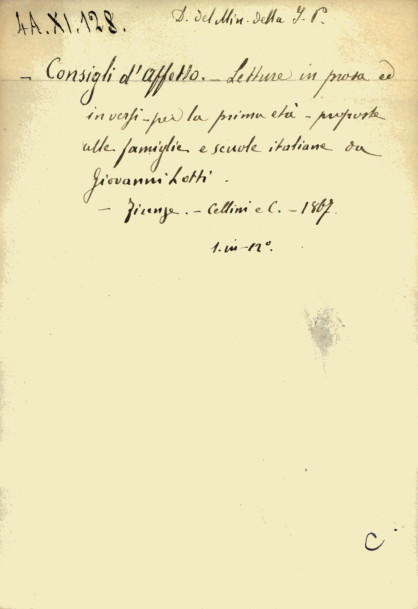 4A.XI.128.
D. del Min. della I. P.
- Consigli d'affetto. - Letture in prosa ed
in versi - per la prima età - proposte
alle famiglie e scuole italiane da
Giovanni Lotti.
- Firenze. - Cellini e C. - 1867.
1. in-12°.
C